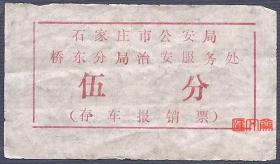 石家庄市公安局
桥东分局治安服务处
伍 分
（存车报销票）